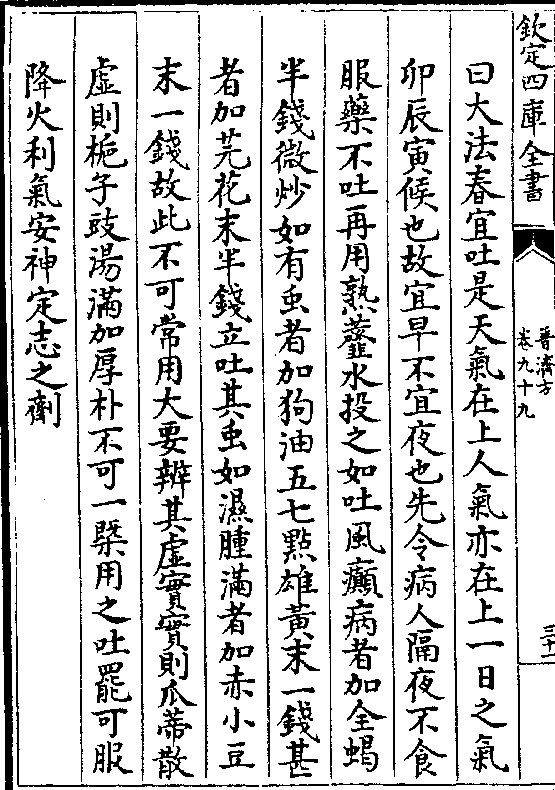 欽定四庫全書
普濟方
卷九十九
三十一
曰大法春宜吐是天氣在上人氣亦在上一日之氣
卯辰寅候也故宜早不宜夜也先令病人隔夜不食
服藥不吐再用熟虀水投之如吐風癲病者加全蝎
半錢微炒如有虫者加狗油五七點雄黃末一錢甚
者加芫花末半錢立吐其虫如濕腫滿者加赤小豆
末一錢故此不可常用大要辨其虛實實則瓜蒂散
虛則梔子豉湯滿加厚朴不可一槩用之吐罷可服
降火利氣安神定志之劑